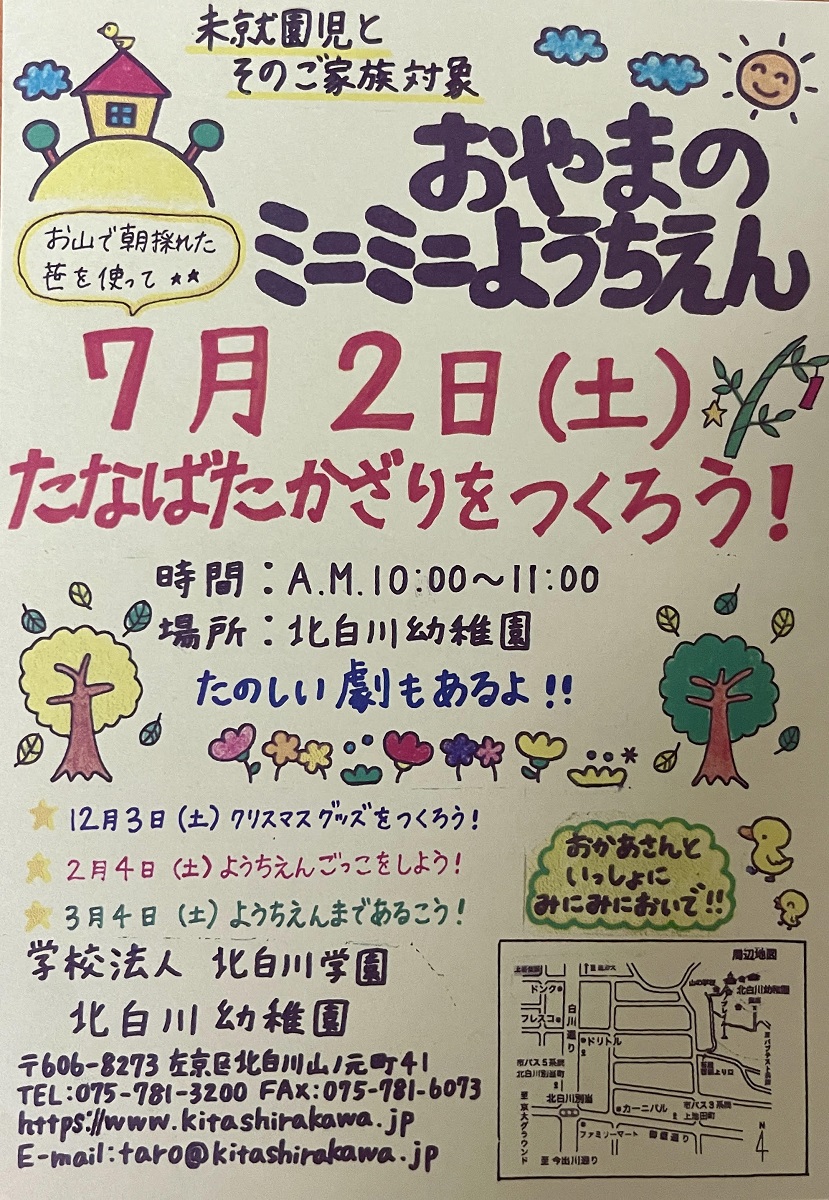 未就園児と
そのご家族対象
おやまの
ミニミニようちえん
お山で朝採れた
笹を使って★★
7月2日(土)
たなばたかざりをつくろう!
時間:A.M.10:00〜11:00
場所:北白川幼稚園
たのしい劇もあるよ!!
12月3日(土)クリスマスグッズをつくろう!
2月4日(土)ようちえんごっこをしよう!
3月4日(土)ようちえんまであるこう!
おかあさんと
いっしょに
みにみにおいで!!
学校法人 北白川学園
北白川幼稚園
〒606-8273 左京区北白川山ノ元町41
TEL:075-781-3200 FAX:075-781-6073
https://www.kitashirakawa.jp
E-mail:taro@kitashirakawa.jp
周辺地図
北白川幼稚園
ドンク
フレスコ
白川通り
ドリトル
市バス5系統
北白川別当町
北白川別当
カーニバル
市バス3系統
上池田町
ファミリーマート
御蔭通り
至京大グラウンド
至今出川通り
N